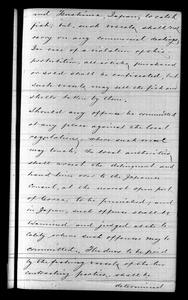 and Tsushima, Japan, to catch
fish; but such vessels shall not
carry on any commercial dealings.
In case of a violation of this
prohibition, all articles purchased
or sold shall be confiscated, but
such vessels may sell the fish and
shells better by them.
Should any offence be committed
at any place against the local
regulations, where such vessels
may touch, the local authorities
shall arrest the delinquent and
hand him over to the Japanese
Consul, at the nearest open port
of Corea, to be punished; and
in Japan, such offences shall be
examined, and judged at the lo-
cality where such offences may be
committed. The dues to be paid
by the fishing vessels of the two
contracting parties, shall be
determined